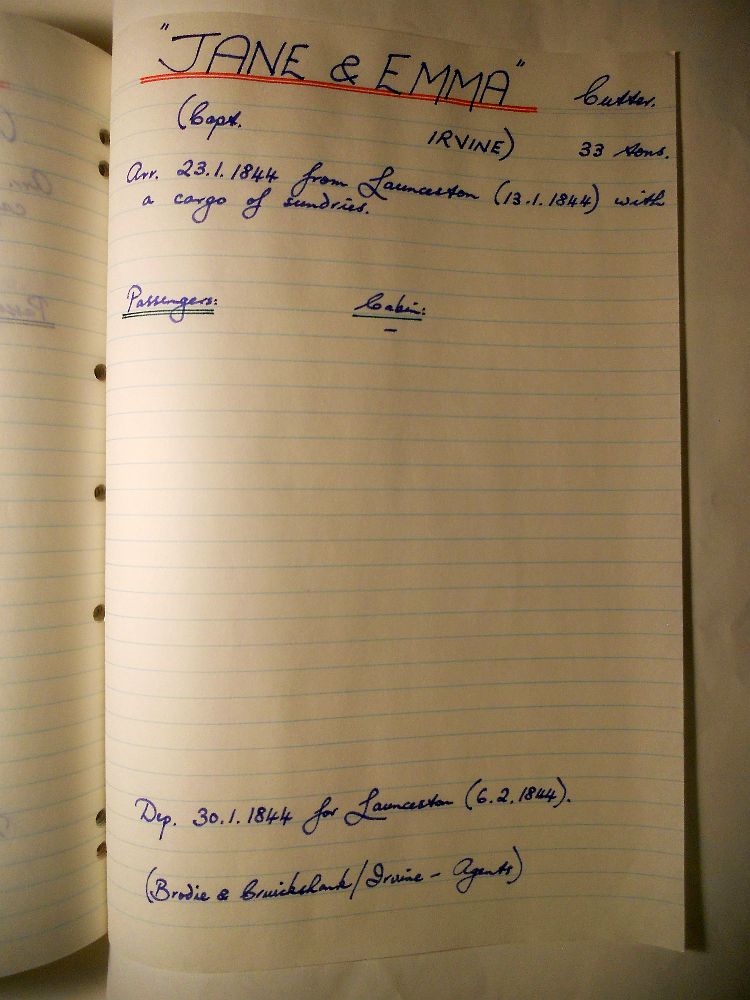 "JANE & EMMA" Cutter.
(Capt. IRVINE) 33 tons.
Arr. 23.1.1844 from Launceston (13.1.1844) with
a cargo of sundries.
Passengers: Cabin:
–
Dep. 30.1.1844 for Launceston (6.2.1844).
(Brodie & Cruickshank/Irvine – Agents)